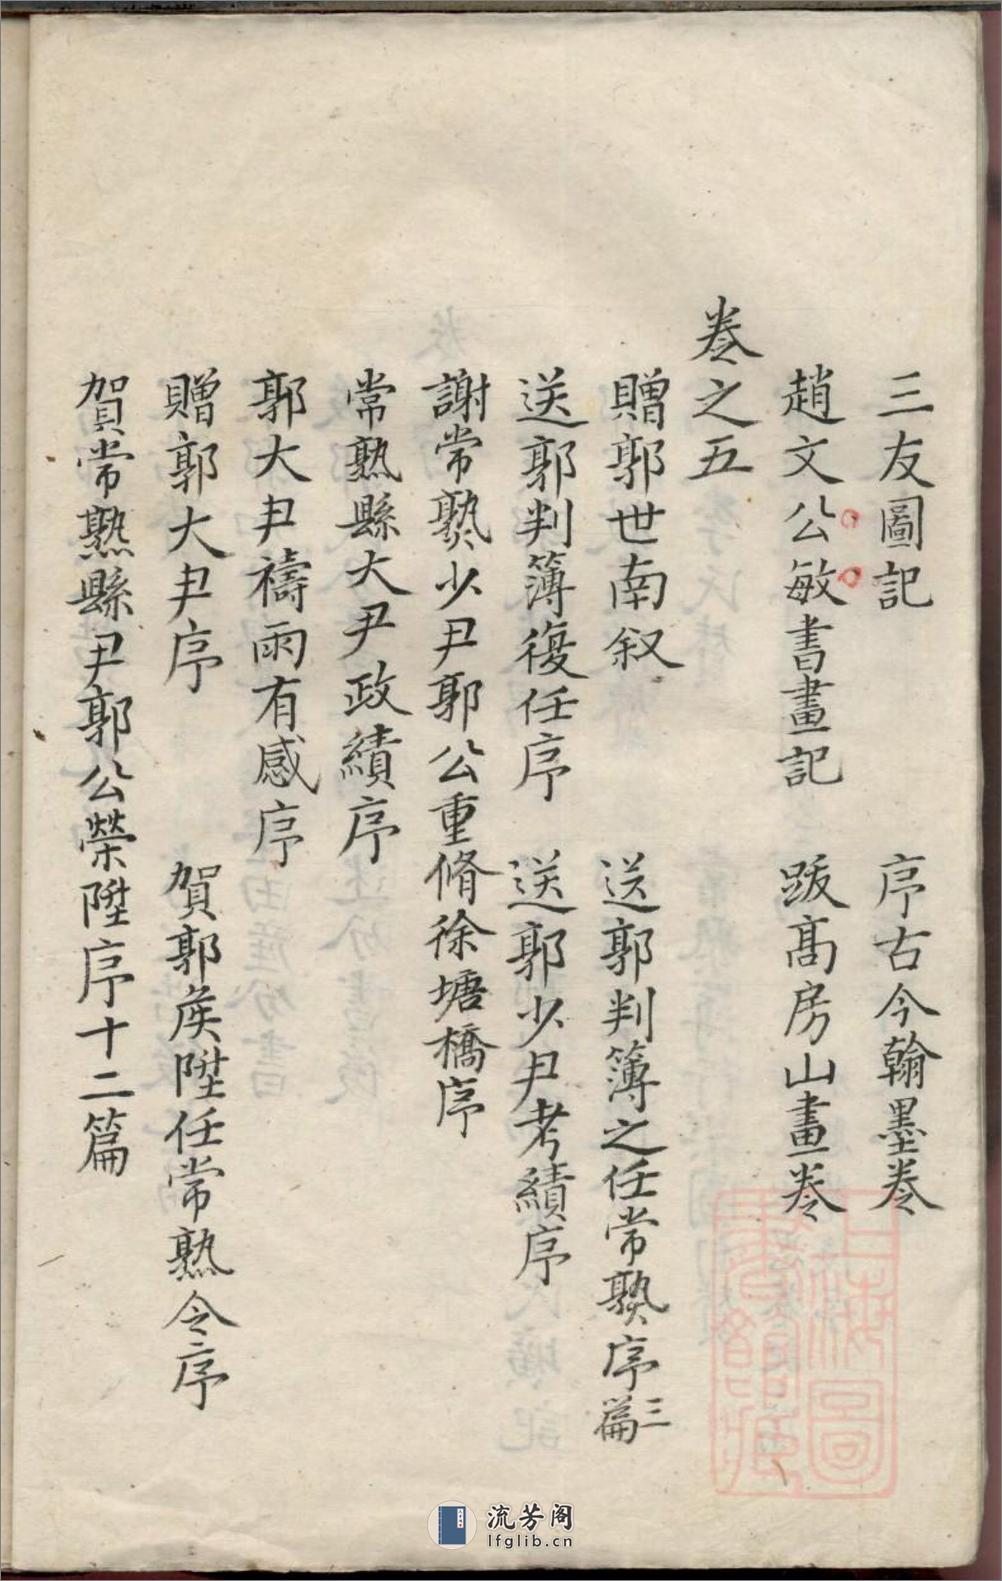 三友圖記　序古今翰墨卷
趙文公敏書畫記　跋髙房山畫卷
卷之五
贈郭世南叙　送郭判簿之任常熟序三篇
送郭判簿復任序　送郭少尹考績序
謝常熟少尹郭公重脩徐塘橋序
常熟縣大尹政績序
郭大尹禱雨有感序
贈郭大尹序　賀郭侯陞任常熟令序
賀常熟縣尹郭公榮陞序十二篇
上海圖書館藏
流芳阁
lfglib.cn